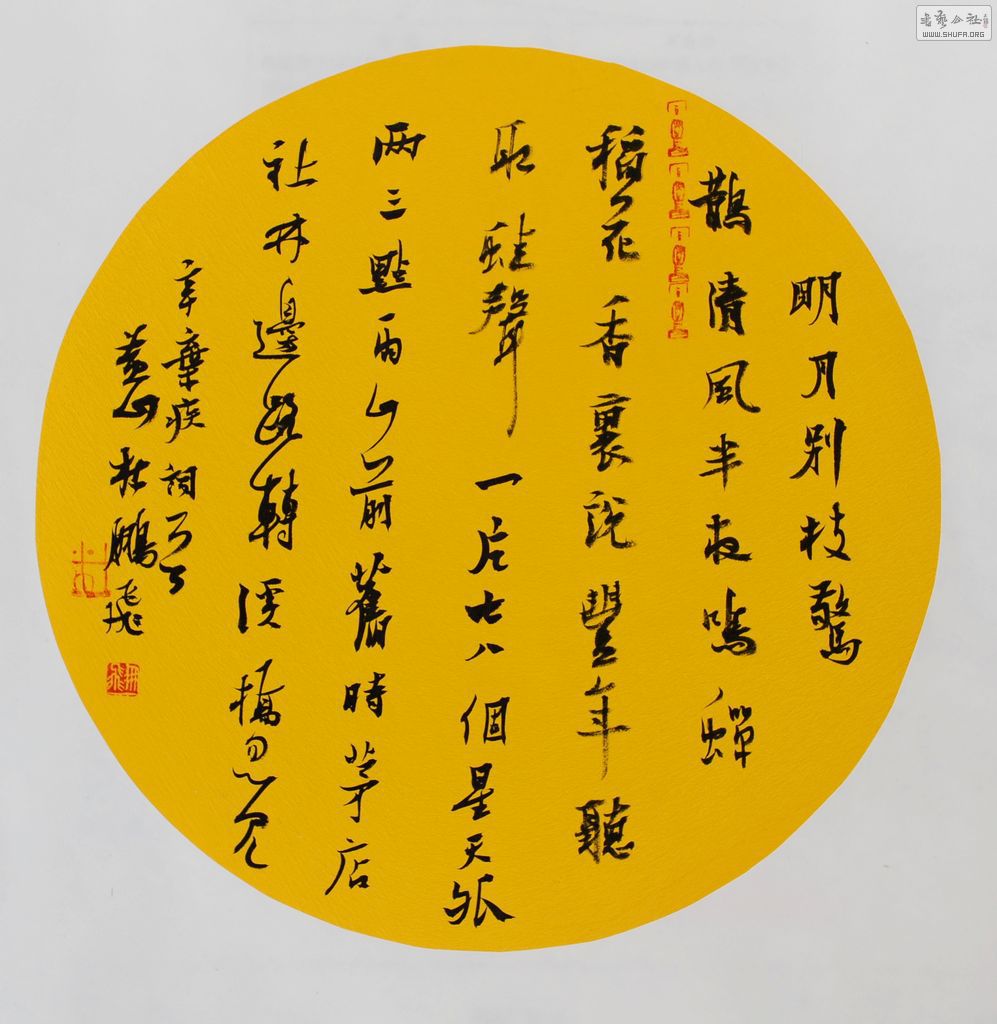 明月别枝驚
鵲清風半夜鳴蟬
稻花香裏説豐年聽
取蛙聲一片七八個星天外
两三點雨山前舊時茅店
社林邊路轉溪橋忽見
辛棄疾詞
黄山杜鵬飛
書藝公社
WWW.SHUFA.ORG